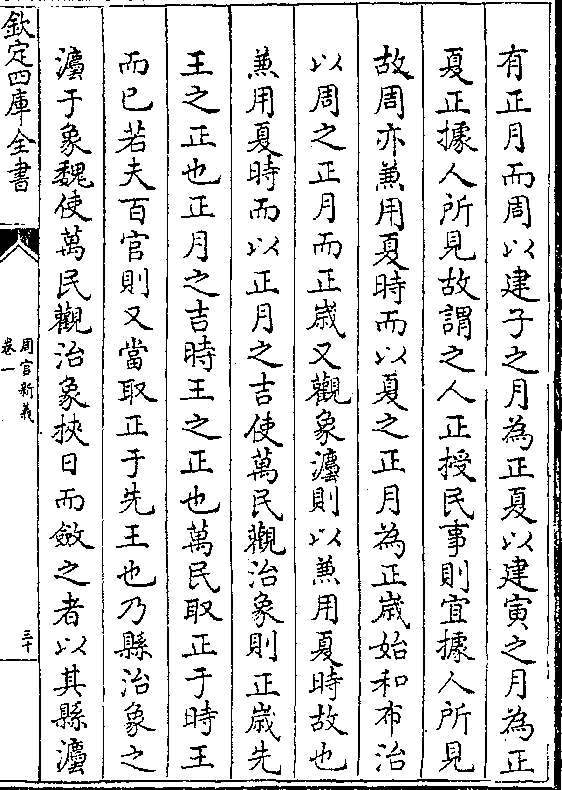 有正月而周以建子之月為正夏以建寅之月為正
夏正據人所見故謂之人正授民事則宜據人所見
故周亦兼用夏時而以夏之正月為正歲始和布治
以周之正月而正歲又觀象灋則以兼用夏時故也
兼用夏時而以正月之吉使萬民觀治象則正歲先
王之正也正月之吉時王之正也萬民取正于時王
而已若夫百官則又當取正于先王也乃縣治象之
灋于象魏使萬民觀治象挾日而斂之者以其縣灋
欽定四庫全書
周官新義
卷一
三十